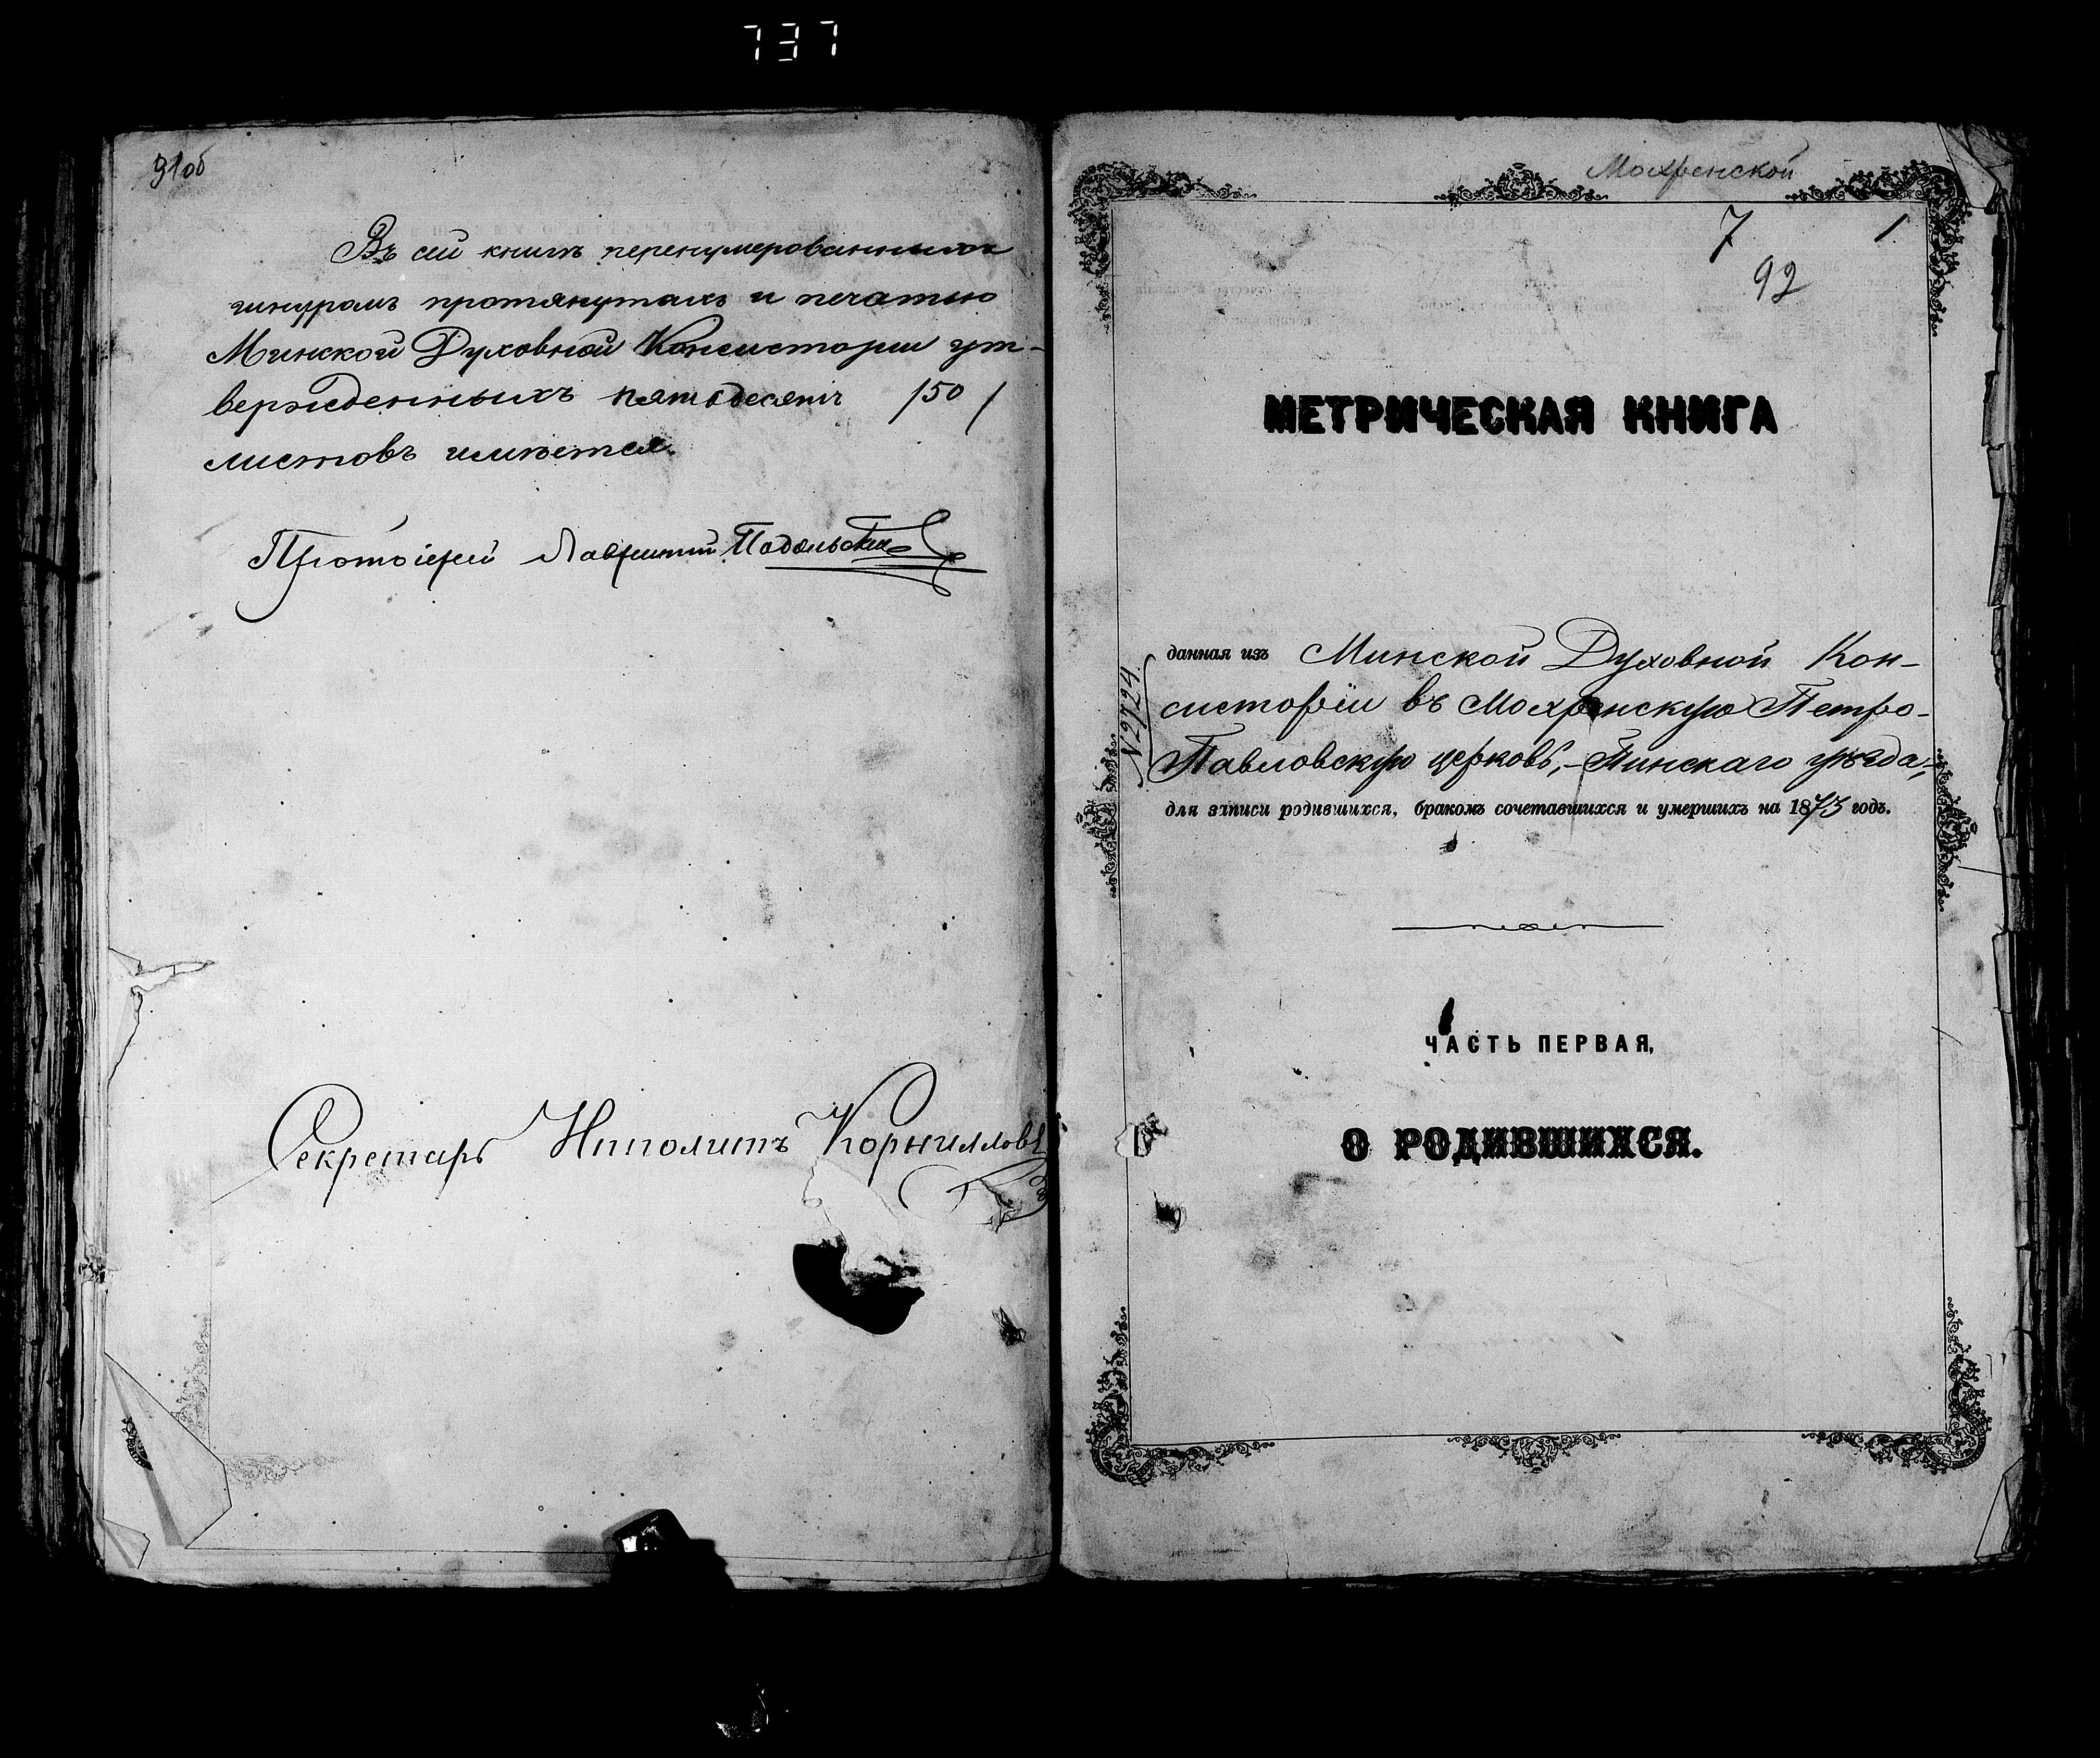 737
91об
Въ сей книгѣ перенумерованныхъ
шнуромъ протянутыхъ и печатью
Минской Духовной Консисторіи ут-
вержденныхъ пятьдесятъ /50/
листовъ имѣется.
Протоіерей Лаврентій Подольскій
Секретарь Ипполитъ Корнилловъ
Мохренской
7 1
92
МЕТРИЧЕСКАЯ КНИГА
данная изъ Минской Духовной Кон-
систоріи въ Мохренскую Петро-
Павловскую церковь,-Пинскаго уѣзда,-
№2724
для записи родившихся, бракомъ сочетавшихся и умершихъ на 1873 годъ.
ЧАСТЬ ПЕРВАЯ,
О РОДИВШИХСЯ.